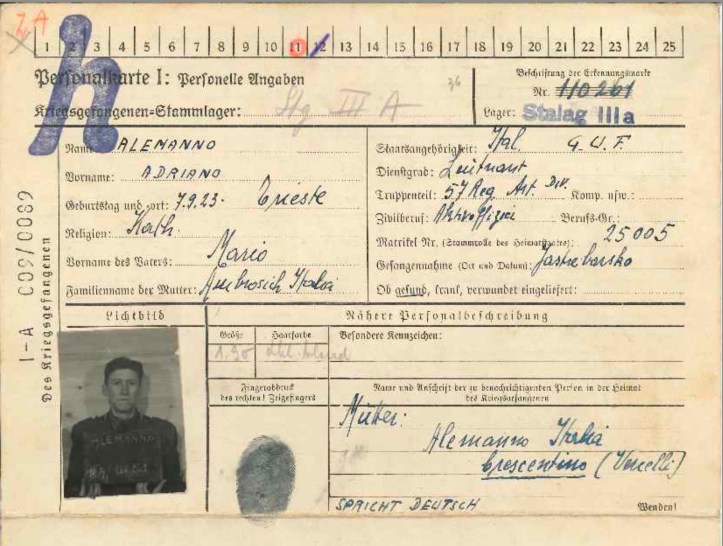 ZA
1 2 3 4 5 6 7 8 9 10 11 12 13 14 15 16 17 18 19 20 21 22 23 24 25
Personalkarte I: Personelle Angaben
Kriegsgefangenen-Stammlager: Stg III A
36
Beschriftung der Erkennungsmarke
Nr. 110261
Lager: Stalag IIIa
Name: ALEMANNO
Vorname: ADRIANO
Geburtstag und -ort: 7.9.23. Trieste
Religion: Kath.
Vorname des Vaters: Mario
Familienname der Mutter: Ambrosich Italia
Staatsangehörigkeit: Ital. G.U.F.
Dienstgrad: Leutnant
Truppenteil: 57 Reg. Art. Div. Komp. usw.:
Zivilberuf: Aktivoffizier Berufs-Gr.:
Matrikel Nr. (Stammrolle des Heimatstaates): 25005
Gefangennahme (Ort und Datum): Jastrebarsko
Ob gesund, krank, verwundet eingeliefert:
I-A 009/0089
Des Kriegsgefangenen
Lichtbild
Nähere Personalbeschreibung
Größe Haarfarbe
1.90 dkl.blond
Besondere Kennzeichen:
Fingerabdruck
des rechten! Zeigefingers
Name und Anschrift der zu benachrichtigenden Person in der Heimat
des Kriegsgefangenen
Mutter:
Alemanno Italia
Crescentino (Vercelli)
ALEMANNO
SPRICHT DEUTSCH
Wenden!